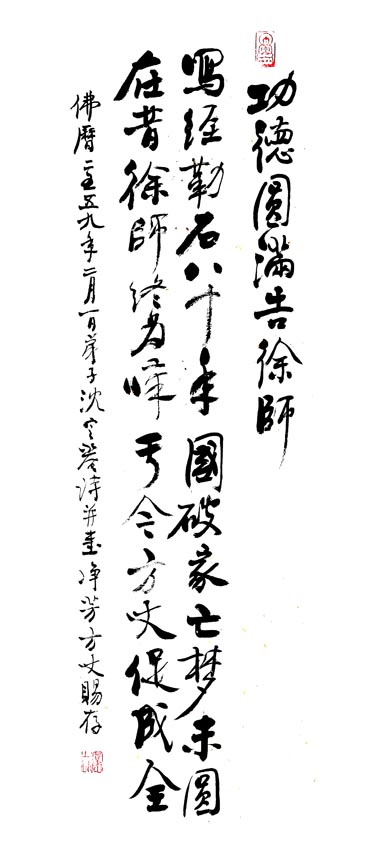 功德圓滿告徐師
寫經勒石八十年國破家亡梦未圆
在昔徐師終為于今方丈促成全
佛曆二五五九年二月一日弟子沈定庵诗并書净芳方丈賜存